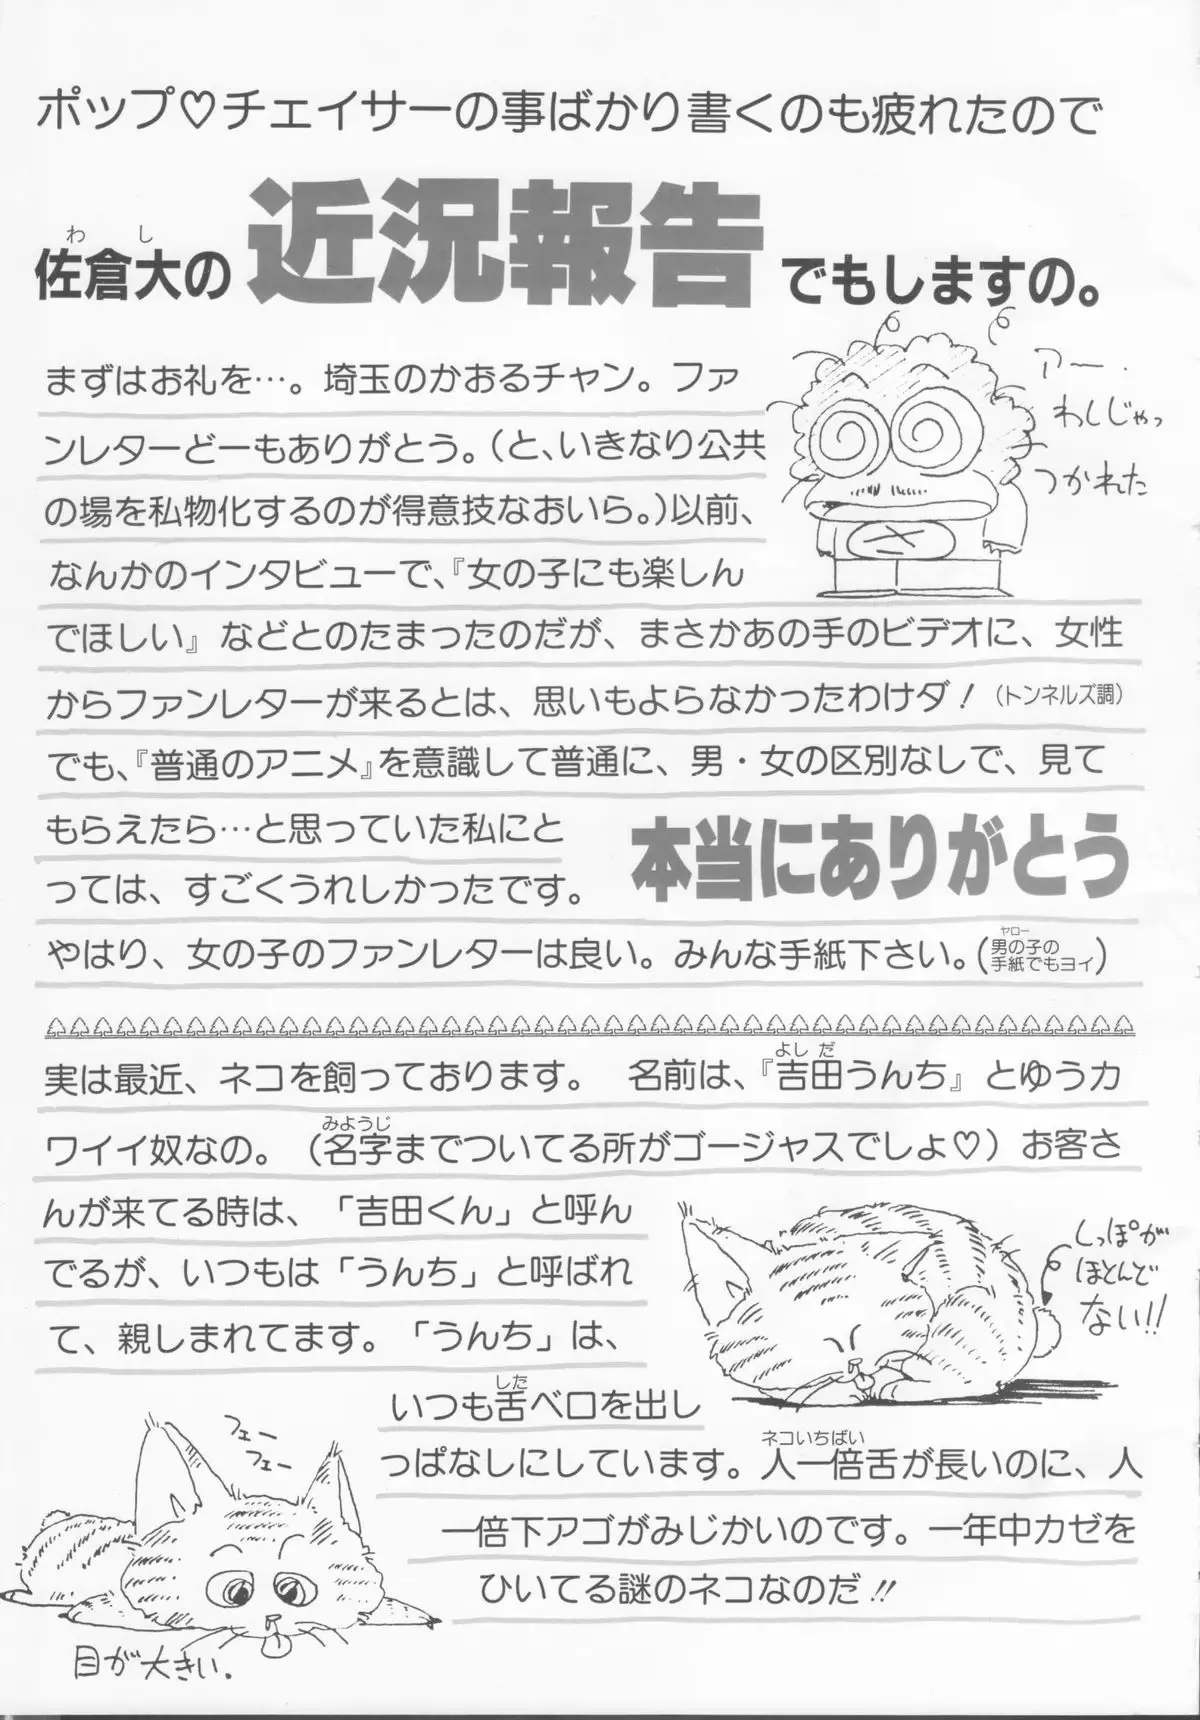 ポップ♡チェイサーの事ばかり書くのも疲れたので
わし
佐倉大の近況報告でもしますの。
まずはお礼を…。埼玉のかおるチャン。ファ
ンレターどーもありがとう。(と、いきなり公共
の場を私物化するのが得意技なおいら。)以前、
なんかのインタビューで、『女の子にも楽しん
でほしい』などとのたまったのだが、まさかあの手のビデオに、女性
からファンレターが来るとは、思いもよらなかったわけダ！(トンネルズ調)
でも、『普通のアニメ』を意識して普通に、男・女の区別なしで、見て
もらえたら…と思っていた私にと
っては、すごくうれしかったです。
本当にありがとう
やはり、女の子のファンレターは良い。みんな手紙下さい。(男の子の手紙でもヨイ)
ヤロー
アー．
わしじゃっ
つかれた
よしだ
実は最近、ネコを飼っております。　名前は、『吉田うんち』とゆうカ
みようじ
ワイイ奴なの。(名字までついてる所がゴージャスでしょ♡)お客さ
んが来てる時は、「吉田くん」と呼ん
でるが、いつもは「うんち」と呼ばれ
て、親しまれてます。「うんち」は、
した
いつも舌ベロを出し
ネコいちばい
っぱなしにしています。人一倍舌が長いのに、人
一倍下アゴがみじかいのです。一年中カゼを
ひいてる謎のネコなのだ!!
しっぽが
ほとんど
ない!!
フェー
フェー
目が大きい．